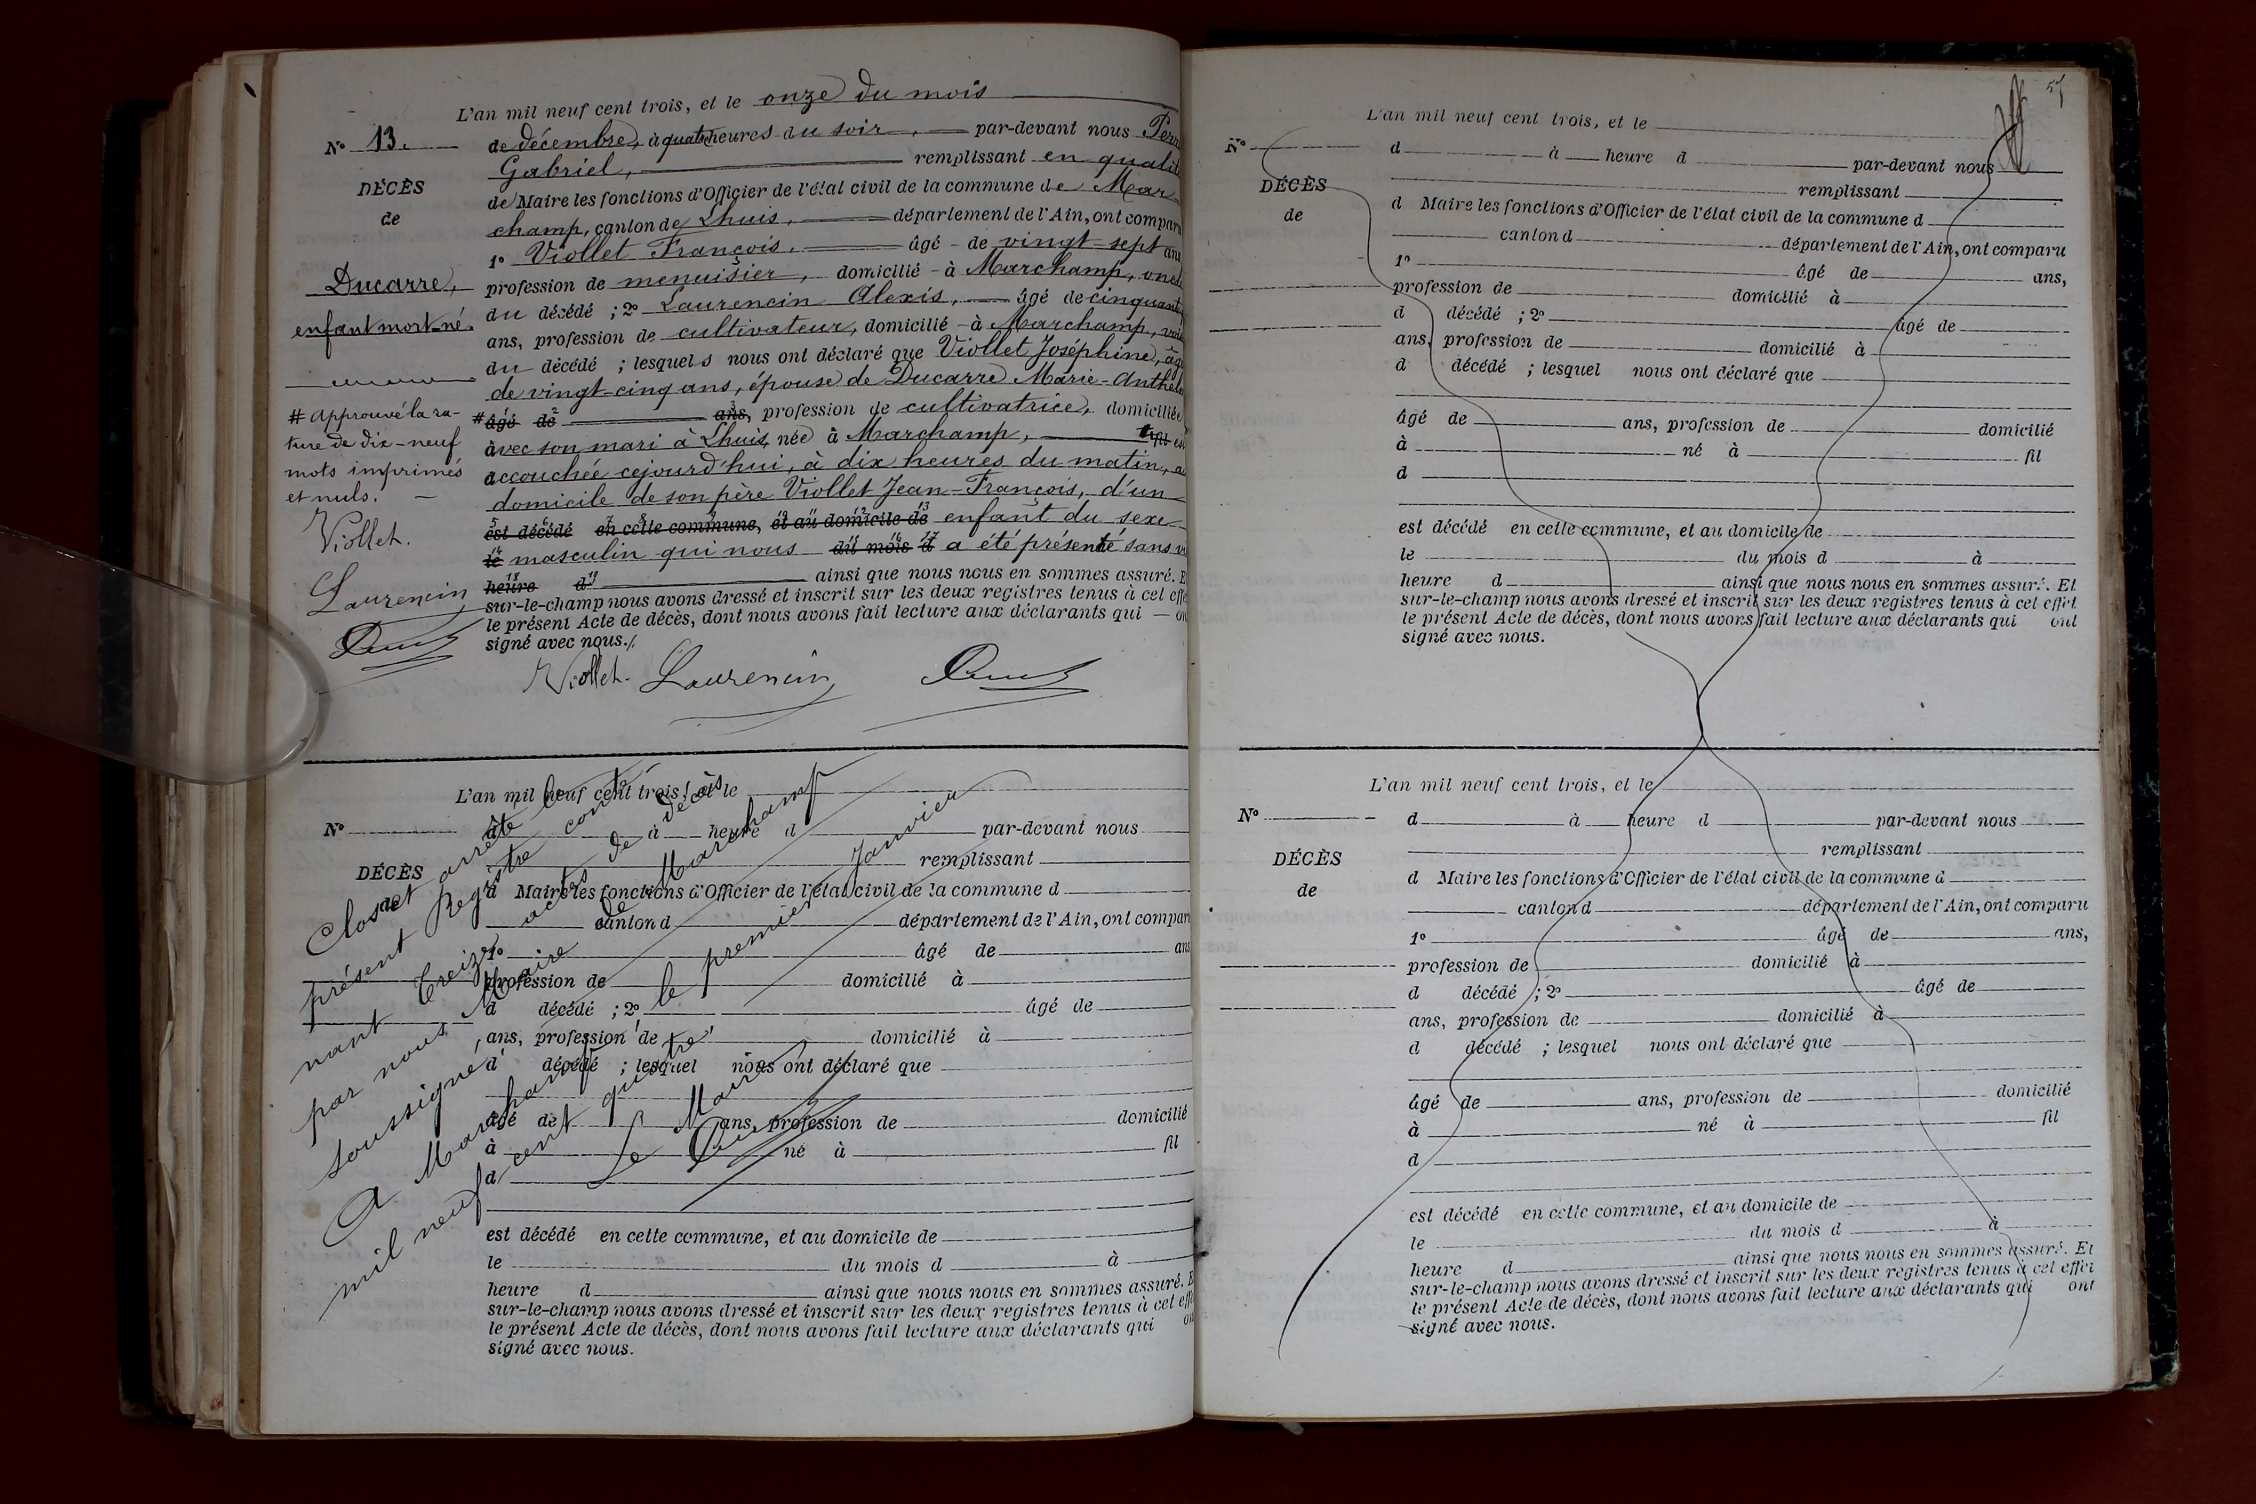 L'an mil neuf cent trois, et le onze du mois
N° 13.
de décembre, à quatre heures du soir, par-devant nous
Gabriel, remplissant en qualité
DÉCÈS
de Maire les fonctions d'Officier de l'état civil de la commune de Mar
de
champ, canton de Lhuis, département de l'Ain, ont comparu
1° Viollet François, âgé de vingt-sept ans
Ducarre,
profession de menuisier, domicilié à Marchamp, oncle
du décédé ; 2° Laurencin Alexis, âgé de cinquante
enfant mort-né.
ans, profession de cultivateur, domicilié à Marchamp, voisin
du décédé ; lesquels nous ont déclaré que Viollet Joséphine, âgé
de vingt-cinq ans, épouse de Ducarre Marie-Anthel
# Approuvé la ra-
ture de dix-neuf
mots imprimés
et nuls.
Viollet.
Laurencin
# âgé de ans, profession de cultivatrice, domiciliée
avec son mari à Lhuis, née à Marchamp, fil est
accouchée cejourd'hui, à dix heures du matin, au
domicile de son père Viollet Jean-François, d'un
est décédé en cette commune, et au domicile de enfant du sexe
le masculin qui nous du mois d a été présenté sans vi
heure d ainsi que nous nous en sommes assuré. E
sur-le-champ nous avons dressé et inscrit sur les deux registres tenus à cet effe
le présent Acte de décès, dont nous avons fait lecture aux déclarants qui on
signé avec nous./.
Viollet. Laurencin
L'an mil neuf cent trois, et le
N°
d à heure d par-devant nous
remplissant
DÉCÈS
de
d Maire les fonctions d'Officier de l'état civil de la commune d
canton d département de l'Ain, ont compar
1° âgé de ans
profession de domicilié à
d décédé ; 2° âgé de
ans, profession de domicilié à
d décédé ; lesquel nous ont déclaré que
âgé de ans, profession de domicilié
à né à fil
d
est décédé en cette commune, et au domicile de
le du mois d à
heure d ainsi que nous nous en sommes assuré. E
sur-le-champ nous avons dressé et inscrit sur les deux registres tenus à cet effe
le présent Acte de décès, dont nous avons fait lecture aux déclarants qui on
signé avec nous.
Clos et arrêté le
présent Registre conte-
nant treize actes de décès
par nous Maire de Marchamp
soussigné,
A Marchamp, le premier Janvier
mil neuf cent quatre
Le Maire
57
L'an mil neuf cent trois, et le
N°
d à heure d par-devant nous
remplissant
DÉCÈS
de
d Maire les fonctions d'Officier de l'état civil de la commune d
canton d département de l'Ain, ont comparu
1° âgé de ans,
profession de domicilié à
d décédé ; 2° âgé de
ans, profession de domicilié à
d décédé ; lesquel nous ont déclaré que
âgé de ans, profession de domicilié
à né à fil
d
est décédé en cette commune, et au domicile de
le du mois d à
heure d ainsi que nous nous en sommes assuré. Et
sur-le-champ nous avons dressé et inscrit sur les deux registres tenus à cet effet
le présent Acte de décès, dont nous avons fait lecture aux déclarants qui ont
signé avec nous.
L'an mil neuf cent trois, et le
N°
d à heure d par-devant nous
remplissant
DÉCÈS
de
d Maire les fonctions d'Officier de l'état civil de la commune d
canton d département de l'Ain, ont comparu
1° âgé de ans,
profession de domicilié à
d décédé ; 2° âgé de
ans, profession de domicilié à
d décédé ; lesquel nous ont déclaré que
âgé de ans, profession de domicilié
à né à fil
d
est décédé en cette commune, et au domicile de
le du mois d à
heure d ainsi que nous nous en sommes assuré. Et
sur-le-champ nous avons dressé et inscrit sur les deux registres tenus à cet effet
le présent Acte de décès, dont nous avons fait lecture aux déclarants qui ont
signé avec nous.